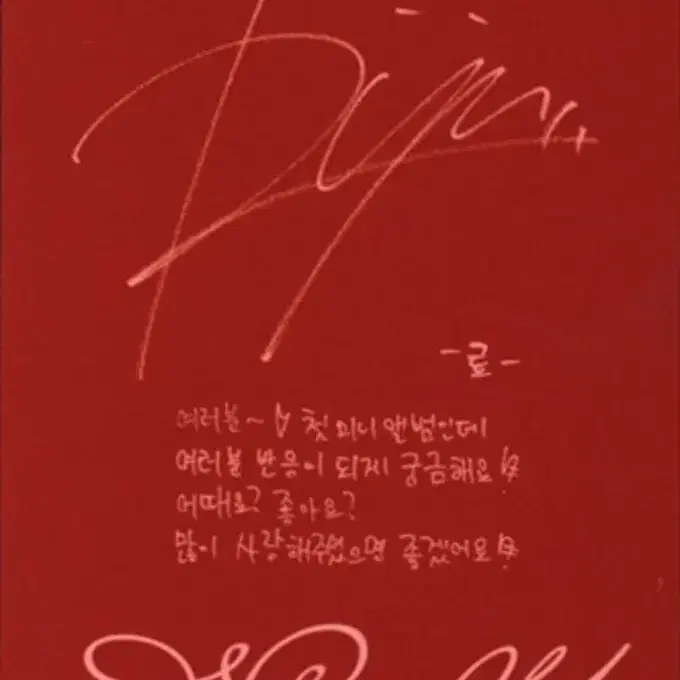 -료-
여러분~ 첫 미니앨범인데
여러분 반응이 되게 궁금해요!
어때요? 좋아요?
많이 사랑해주셨으면 좋겠어요!